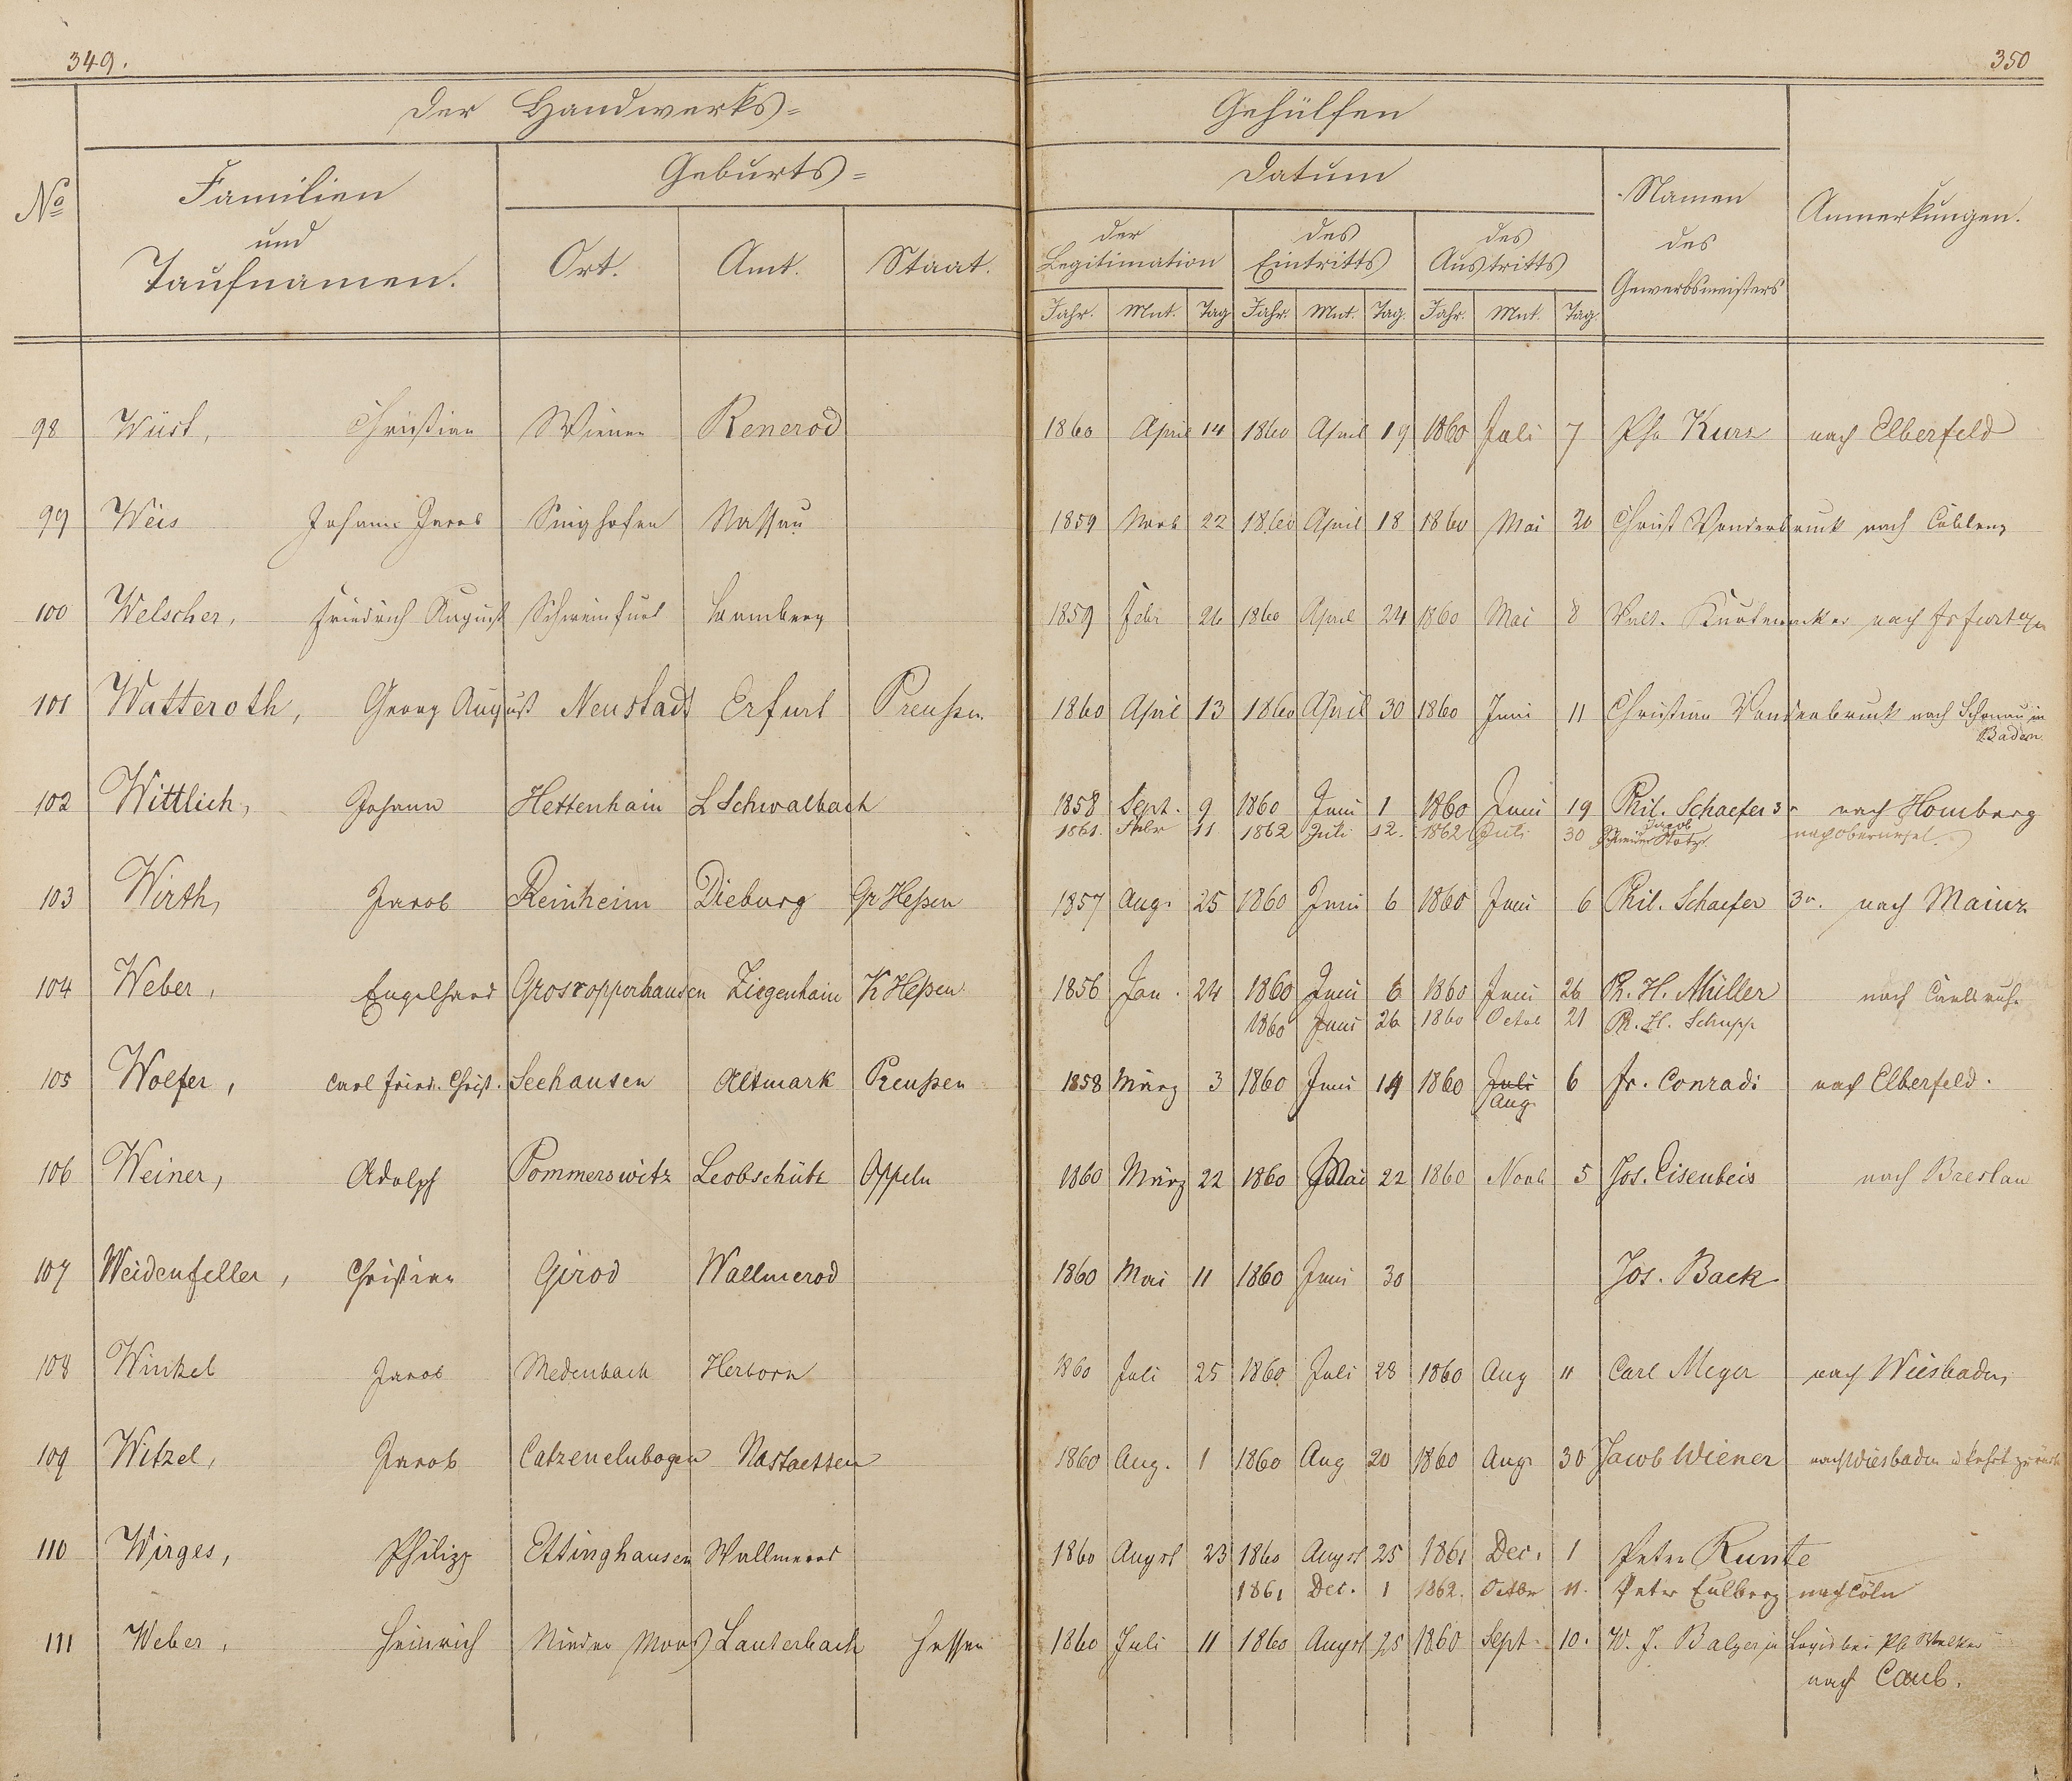 349.
350
der Handwerks=
Gehülfen
No
Familien
und
Taufnamen.
Geburts=
Ort.
Amt.
Staat.
Datum
der
Legitimation
des
Eintritts
des
Austritts
Jahr. Mnt. Tag Jahr. Mnt. Tag. Jahr. Mnt. Tag.
Namen
des
Gewerbsmeisters
Anmerkungen.
98 Wüst, Christian Renerod 1860 April 14 1860 April 19 1860 Juli 7 Ph. Kurz nach Elberfeld
99 Weis Johann Jacob Singhofen Nassau 1859 Novb 22 1860 April 18 1860 Mai 20 Christ Vonderbruck nach Coblenz
100 Welscher, Friedrich August Schweinfurt 1859 Febr 26 1860 April 24 1860 Mai 8 nach
101 Watteroth, Georg August Neustadt Erfurt Preußen 1860 April 13 1860 April 30 1860 Juni 11 Christian Vonderbruck nach Schönau in
Baden
102 Wittlich, Johann Hettenhain L Schwalbach 1858 Sept. 9 1860 Juni 1 1860 Juni 19 Phil. Schaefer 3r nach Homberg
1861. Febr 11 1862 Juli 12. 1862 Juli 30 Jacob nach oberursel.
103 Wirth, Jacob Reinheim Dieburg Gr Heßen 1857 Aug. 25 1860 Juni 6 1860 Juni 6 Phil. Schaefer 3r. nach Mainz
104 Weber, Engelhard Grosropperhausen Ziegenhain K Heßen 1856 Jan. 24 1860 Juni 6 1860 Juni 26 Ph. H. Müller nach Carlsruhe
1860 Juni 26 1860 Octob 21 Ph. H. Schupp
105 Woefer, Carl Fried. Christ. Seehausen Altmark Preußen 1858 März 3 1860 Juni 14 1860 Juli 6 Fr. Conradi nach Elberfeld.
Aug
106 Weiner, Adolph Pommerswitz Leobschütz Oppeln 1860 März 22 1860 Mai 22 1860 Novb 5 Jos. Eisenbeis nach Breslau
107 Weidenfeller, Christian Girod Wallmerod 1860 Mai 11 1860 Juni 30 Jos. Back
108 Winkel Jacob Medenbach Herborn 1860 Juli 25 1860 Juli 28 1860 Aug 11 Carl Meyer nach Wiesbaden
109 Witzel, Jacob Catzenelnbogen Nastaetten 1860 Aug. 1 1860 Aug 20 1860 Aug. 30 Jacob Wiener nach Wiesbaden u kehrt zurück
110 Wirges, Philipp Ettinghausen Wallmerod 1860 Augst 23 1860 Augst 25 1861 Dec. 1 Peter Kunte
1861 Dec. 1 1862. Octbr 11. Peter Eulberg nach Cöln
111 Weber, Heinrich Nieder Moos Lauterbach Hessen 1860 Juli 11 1860 Augst 25 1860 Sept 10. W. J. Balzer jr Logis bei Ph
nach Caub.